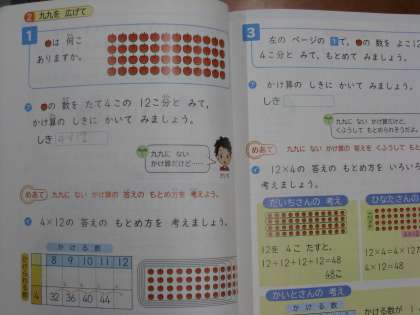 2 九九を 広げて
1
●は 何こ
ありますか。
ア ●の 数を たて4この 12こ分と みて、
かけ算の しきに かいて みましょう。
しき
九九に ない
かけ算だけど……
めあて 九九に ない かけ算の 答えの もとめ方を 考えよう。
イ 4×12の 答えの もとめ方を 考えましょう。
かける数
8 9 10 11 12
かけられる数
4 32 36 40 44
3
左の ページの 1で、●の 数を よこ12
4こ分と みて、もとめて みましょう。
ア かけ算の しきに かいて みましょう。
しき
九九に ない かけ算だけど、
くふうして もとめられそうだよ
めあて 九九に ない かけ算の 答えを くふうして も
イ 12×4の 答えの もとめ方を いろいろ
考えましょう。
だいちさんの 考え
12を 4こ たすと、
12+12+12+12=48
48こ
ひなたさんの
12×4=4×12
4×12=48
かいとさんの 考え
かける数が